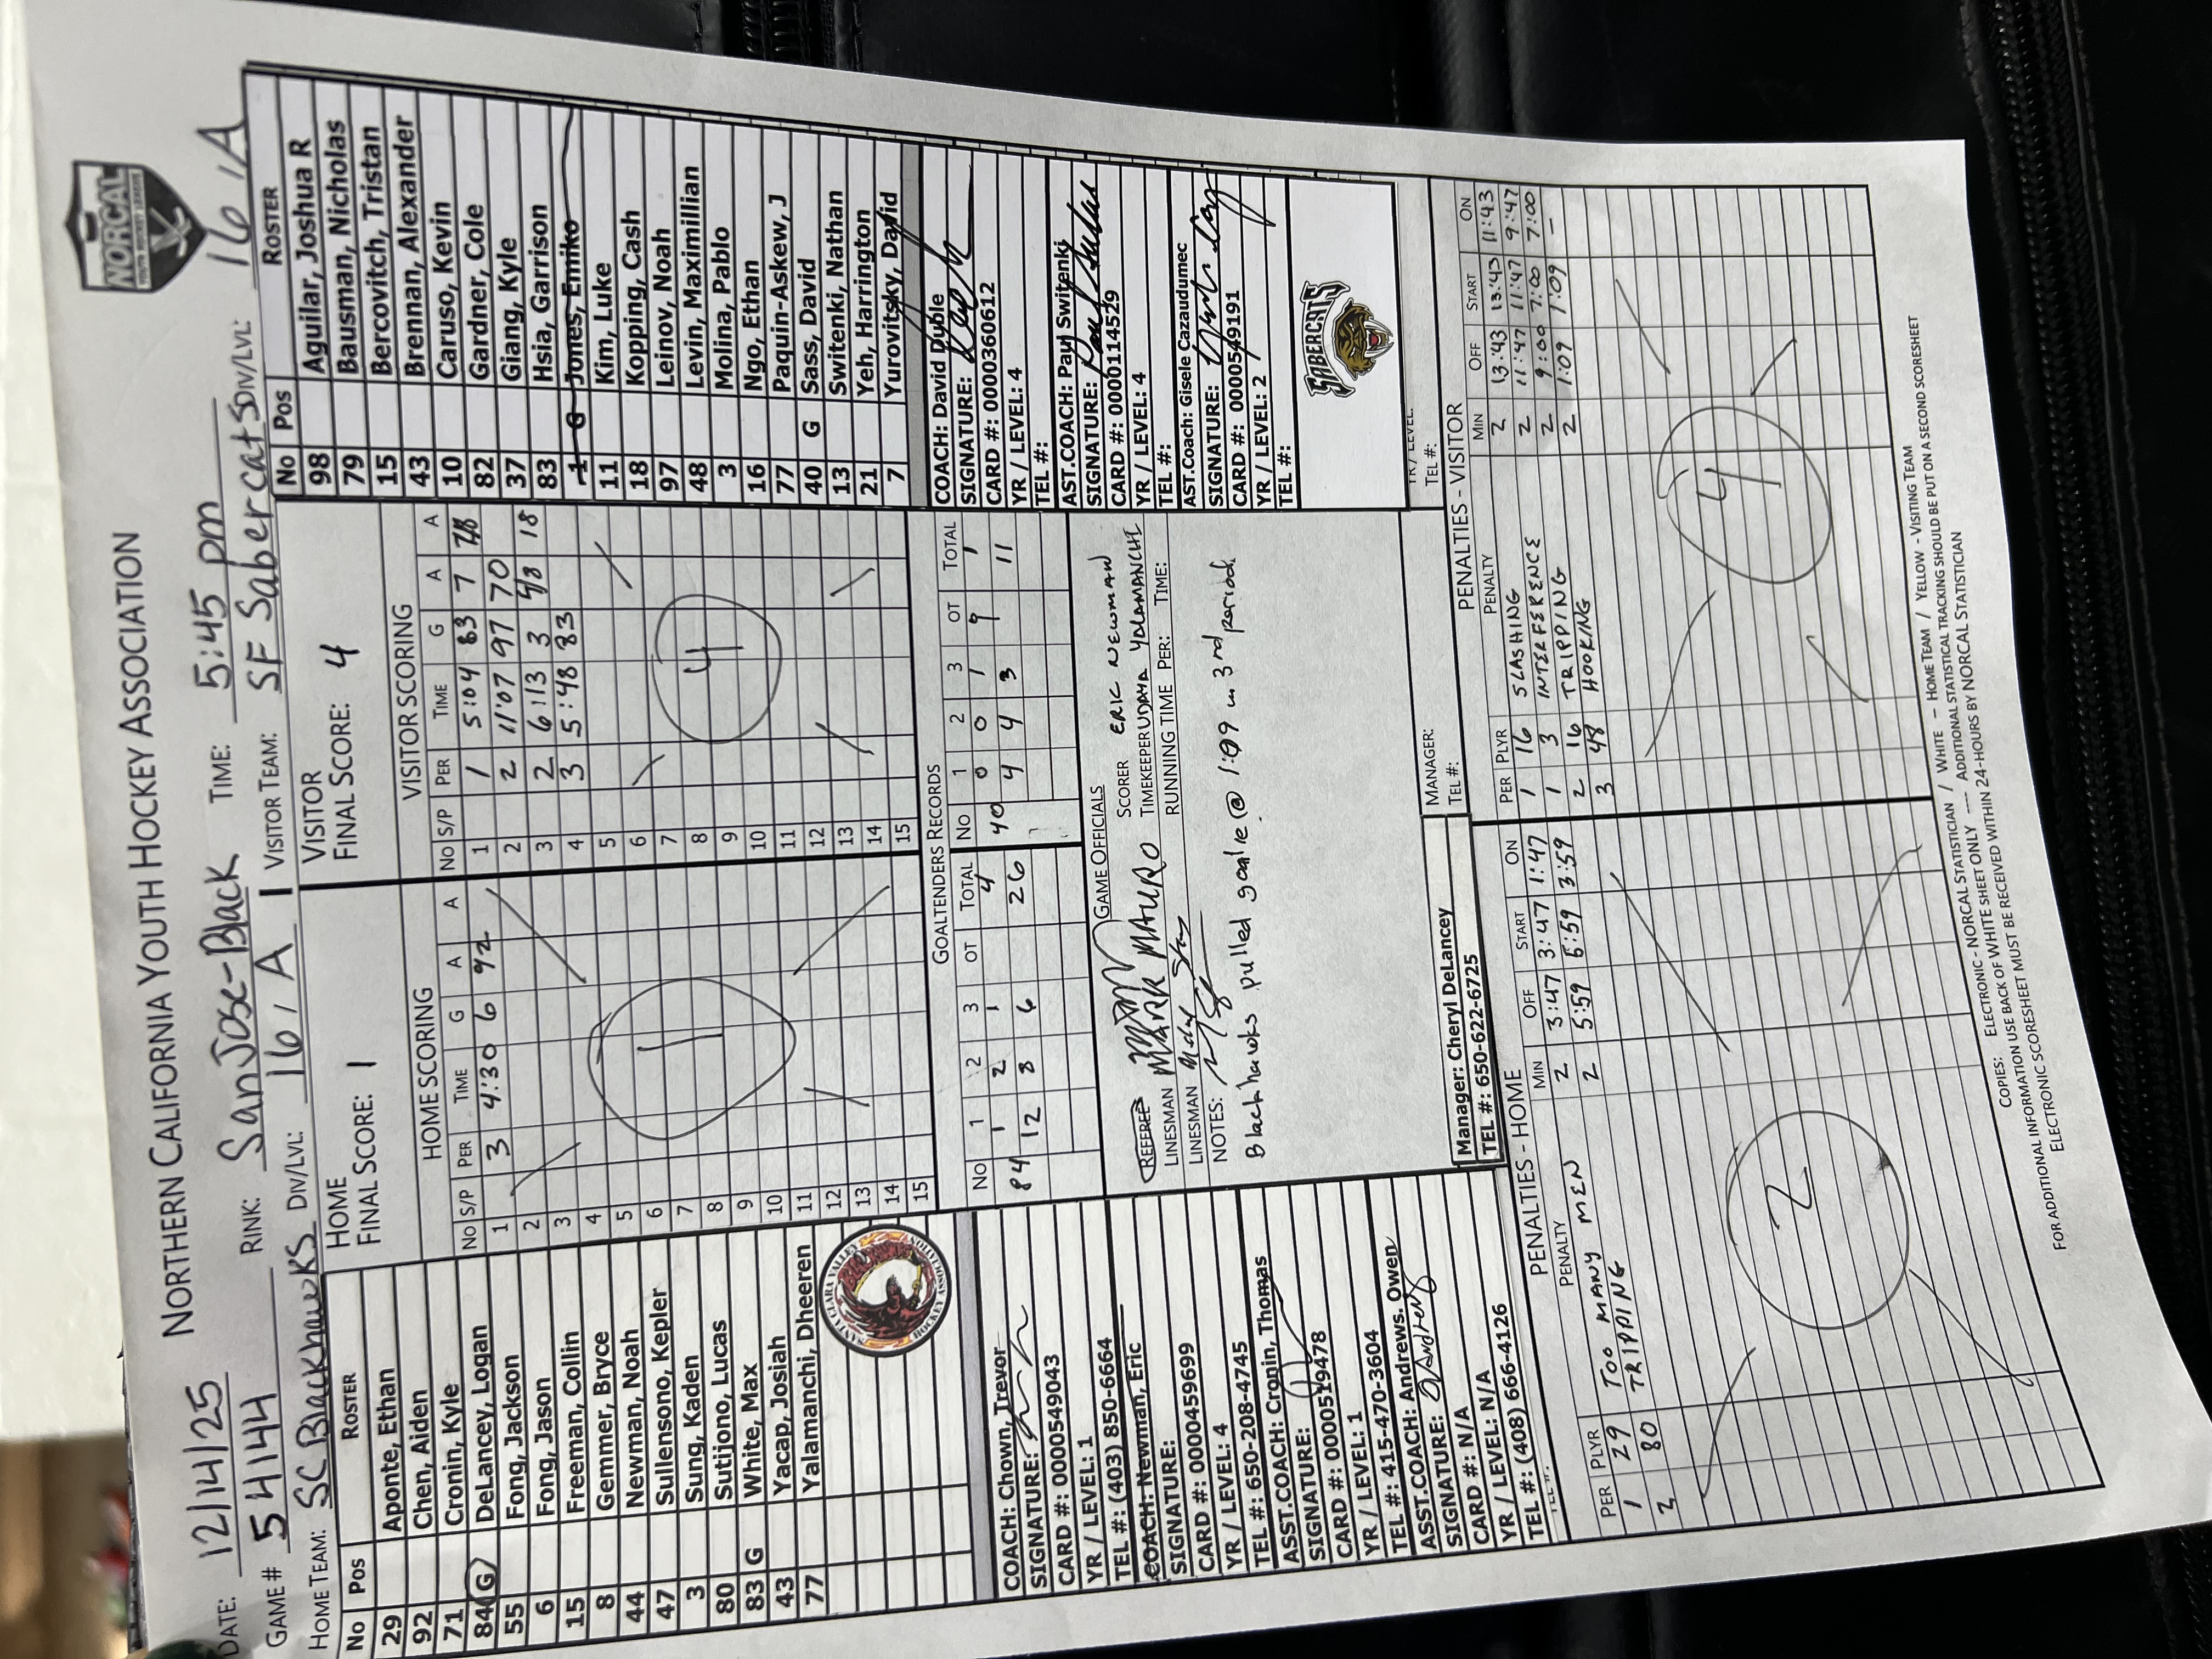 NORTHERN CALIFORNIA YOUTH HOCKEY ASSOCIATION
NORCAL
YOUTH HOCKEY LEAGUE
DATE: 12/14/25
GAME # 54144 RINK: San Jose-Black TIME: 5:45 pm
HOME TEAM: SC Blackhawks DIV/LVL: 16 / A VISITOR TEAM: SF Sabercats DIV/LVL: 16 / A
No Pos ROSTER
29 Aponte, Ethan
92 Chen, Aiden
71 Cronin, Kyle
84 G DeLancey, Logan
55 Fong, Jackson
6 Fong, Jason
15 Freeman, Collin
8 Gemmer, Bryce
44 Newman, Noah
47 Sullensono, Kepler
3 Sung, Kaden
80 Sutijono, Lucas
83 G White, Max
43 Yacap, Josiah
77 Yalamanchi, Dheeren
SANTA CLARA VALLEY
BLACKHAWKS
HOCKEY ASSOCIATION
COACH: Chown, Trevor
SIGNATURE:
CARD #: 0000549043
YR / LEVEL: 1
TEL #: (403) 850-6664
COACH: Newman, Eric
SIGNATURE:
CARD #: 0000459699
YR / LEVEL: 4
TEL #: 650-208-4745
ASST.COACH: Cronin, Thomas
SIGNATURE:
CARD #: 0000519478
YR / LEVEL: 1
TEL #: 415-470-3604
ASST.COACH: Andrews. Owen
SIGNATURE:
CARD #: N/A
YR / LEVEL: N/A
TEL #: (408) 666-4126
HOME
FINAL SCORE: 1
HOME SCORING
No S/P PER TIME G A A
1 3 4:30 6 92
2
3
4
5
6
7
8
9
10
11
12
13
14
15
1
VISITOR
FINAL SCORE: 4
VISITOR SCORING
No S/P PER TIME G A A
1 1 5:04 83 7
2 2 11:07 97 70
3 2 6:13 3 48 18
4 3 5:48 83
5
6
7
8
9
10
11
12
13
14
15
4
GOALTENDERS RECORDS
No 1 2 3 OT TOTAL
84 1 2 1 4
12 8 6 26
No 1 2 3 OT TOTAL
40 0 0 1 1
4 4 3 11
GAME OFFICIALS
REFEREE
MARK MAURO
LINESMAN
LINESMAN
SCORER ERIC NEWMAN
TIMEKEEPER UDAYA YALAMANCHI
RUNNING TIME PER: TIME:
NOTES:
Blackhawks pulled goalie @ 1:09 in 3rd period.
Manager: Cheryl DeLancey
TEL #: 650-622-6725
No Pos ROSTER
98 Aguilar, Joshua R
79 Bausman, Nicholas
15 Bercovitch, Tristan
43 Brennan, Alexander
10 Caruso, Kevin
82 Gardner, Cole
37 Giang, Kyle
83 Hsia, Garrison
1 G Jones, Emiko
11 Kim, Luke
18 Kopping, Cash
97 Leinov, Noah
48 Levin, Maximillian
3 Molina, Pablo
16 Ngo, Ethan
77 Paquin-Askew, J
40 G Sass, David
13 Switenki, Nathan
21 Yeh, Harrington
7 Yurovitsky, David
COACH: David Duble
SIGNATURE:
CARD #: 0000360612
YR / LEVEL: 4
TEL #:
AST.COACH: Paul Switenki
SIGNATURE:
CARD #: 0000114529
YR / LEVEL: 4
TEL #:
AST.Coach: Gisele Cazaudumec
SIGNATURE:
CARD #: 0000549191
YR / LEVEL: 2
TEL #:
SABERCATS
TEL #:
MANAGER:
TEL #:
PENALTIES - HOME
PER PLYR PENALTY MIN OFF START ON
1 29 TOO MANY MEN 2 3:47 3:47 1:47
3 80 TRIPPING 2 5:59 5:59 3:59
2
PENALTIES - VISITOR
PER PLYR PENALTY MIN OFF START ON
1 16 SLASHING 2 13:43 13:43 11:43
1 3 INTERFERENCE 2 11:47 11:47 9:47
2 16 TRIPPING 2 9:00 7:00 7:00
3 48 HOOKING 2 1:09 1:09 —
4
COPIES: ELECTRONIC - NORCAL STATISTICIAN / WHITE – HOME TEAM / YELLOW - VISITING TEAM
FOR ADDITIONAL INFORMATION USE BACK OF WHITE SHEET ONLY ---- ADDITIONAL STATISTICAL TRACKING SHOULD BE PUT ON A SECOND SCORESHEET
ELECTRONIC SCORESHEET MUST BE RECEIVED WITHIN 24-HOURS BY NORCAL STATISTICIAN